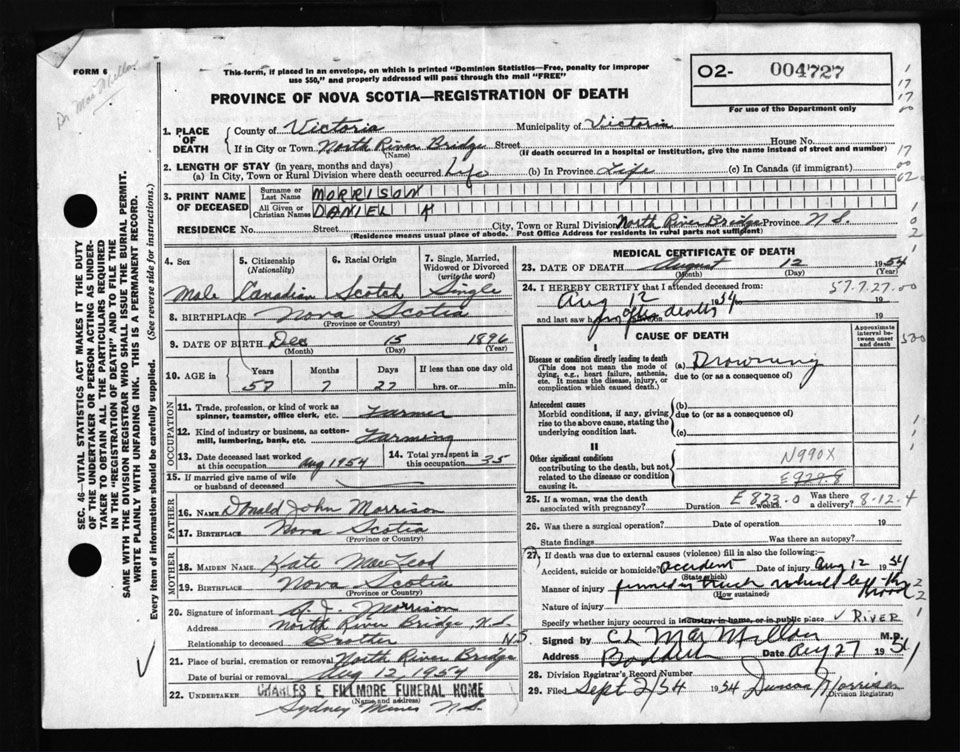 FORM 6
Dr. Mac Millan
This form, if placed in an envelope, on which is printed "Dominion Statistics—Free, penalty for improper
use $50," and properly addressed will pass through the mail "FREE"
O2- 004727
For use of the Department only
PROVINCE OF NOVA SCOTIA—REGISTRATION OF DEATH
1. PLACE OF DEATH
County of Victoria Municipality of Victoria
If in City or Town North River Bridge Street House No.
(Name) (If death occurred in a hospital or institution, give the name instead of street and number)
2. LENGTH OF STAY (in years, months and days)
(a) In City, Town or Rural Division where death occurred Life (b) In Province Life (c) In Canada (if immigrant)
3. PRINT NAME OF DECEASED
Surname or Last Name MORRISON
All Given or Christian Names DANIEL K
RESIDENCE No. Street City, Town or Rural Division North River Bridge Province N.S.
(Residence means usual place of abode. Post Office Address for residents in rural parts not sufficient)
4. Sex 5. Citizenship (Nationality) 6. Racial Origin 7. Single, Married, Widowed or Divorced (write the word)
Male Canadian Scotch Single
8. BIRTHPLACE Nova Scotia
(Province or Country)
9. DATE OF BIRTH Dec 15 1896
(Month) (Day) (Year)
10. AGE Years Months Days If less than one day old
57 7 27 hrs. or min.
OCCUPATION
11. Trade, profession, or kind of work as spinner, teamster, office clerk, etc. Farmer
12. Kind of industry or business, as cotton-mill, lumbering, bank, etc. Farming
13. Date deceased last worked at this occupation Aug 1954 14. Total yrs. spent in this occupation 35
15. If married give name of wife or husband of deceased —
FATHER
16. NAME Donald John Morrison
17. BIRTHPLACE Nova Scotia
(Province or Country)
MOTHER
18. MAIDEN NAME Kate MacLeod
19. BIRTHPLACE Nova Scotia
(Province or Country)
20. Signature of informant Morrison
Address North River Bridge, N.S.
Relationship to deceased Brother N.S
21. Place of burial, cremation or removal North River Bridge
Date of burial or removal Aug 12, 1954
22. UNDERTAKER CHARLES E. FILLMORE FUNERAL HOME
(Name and address)
Sydney Mines N.S.
MEDICAL CERTIFICATE OF DEATH
23. DATE OF DEATH August 12 1954
(Month) (Day) (Year)
24. I HEREBY CERTIFY that I attended deceased from: 57.7.27.00
Aug 12 19
and last saw h after death 1954 19
CAUSE OF DEATH
Approximate interval between onset and death
I
Disease or condition directly leading to death
(This does not mean the mode of dying, e.g., heart failure, asthenia, etc. It means the disease, injury, or complication which caused death.)
(a) Drowning
due to (or as a consequence of)
Antecedent causes
Morbid conditions, if any, giving rise to the above cause, stating the underlying condition last.
(b)
due to (or as a consequence of)
(c)
II
Other significant conditions
contributing to the death, but not related to the disease or condition causing it
N990X
E929.8
25. If a woman, was the death associated with pregnancy? E 823.0 Duration weeks. Was there a delivery? 8-12.4
26. Was there a surgical operation? Date of operation 19
State findings Was there an autopsy?
27. If death was due to external causes (violence) fill in also the following:—
Accident, suicide or homicide? accident Date of injury Aug 12 1954
(State which)
Manner of injury pinned in truck
(How sustained)
Nature of injury
Specify whether injury occurred in industry in home, or in public place ✓ RIVER
Signed by C L MacMillan M.D.
Address Baddeck Date Aug 27 1954
28. Division Registrar's Record Number
29. Filed Sept 2/54 1954 Duncan Morrison
(Division Registrar)
SEC. 46—VITAL STATISTICS ACT MAKES IT THE DUTY
OF THE UNDERTAKER OR PERSON ACTING AS UNDER-
TAKER TO OBTAIN ALL THE PARTICULARS REQUIRED
IN THE "REGISTRATION OF DEATH" AND TO FILE THE
SAME WITH THE DIVISION REGISTRAR WHO SHALL ISSUE THE BURIAL PERMIT.
WRITE PLAINLY WITH UNFADING INK. THIS IS A PERMANENT RECORD.
Every item of information should be carefully supplied. (See reverse side for instructions.)